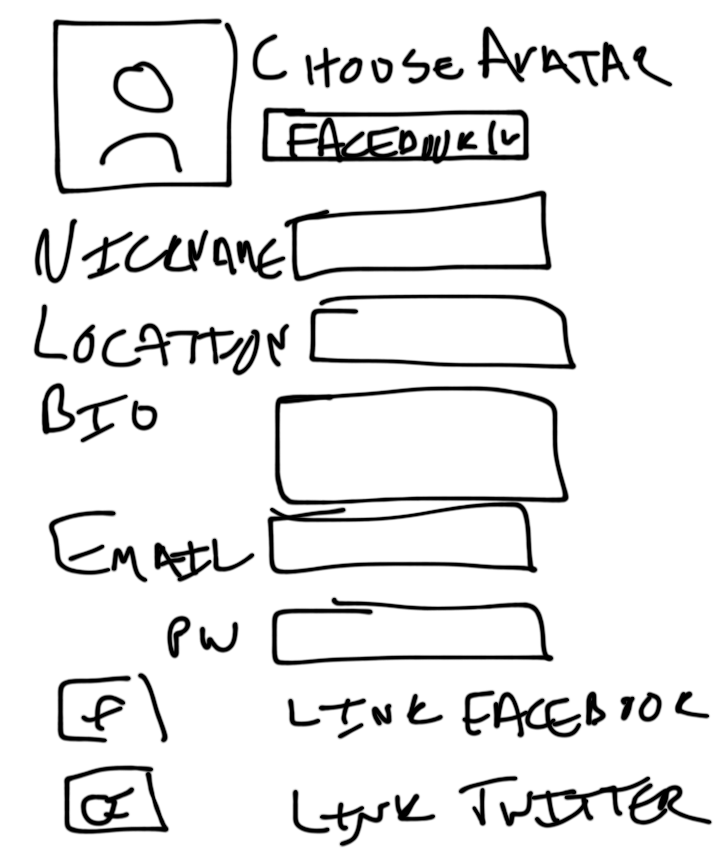 CHOOSE AVATAR
FACEBOOK
NICKNAME
LOCATION
BIO
EMAIL
PW
f LINK FACEBOOK
LINK TWITTER